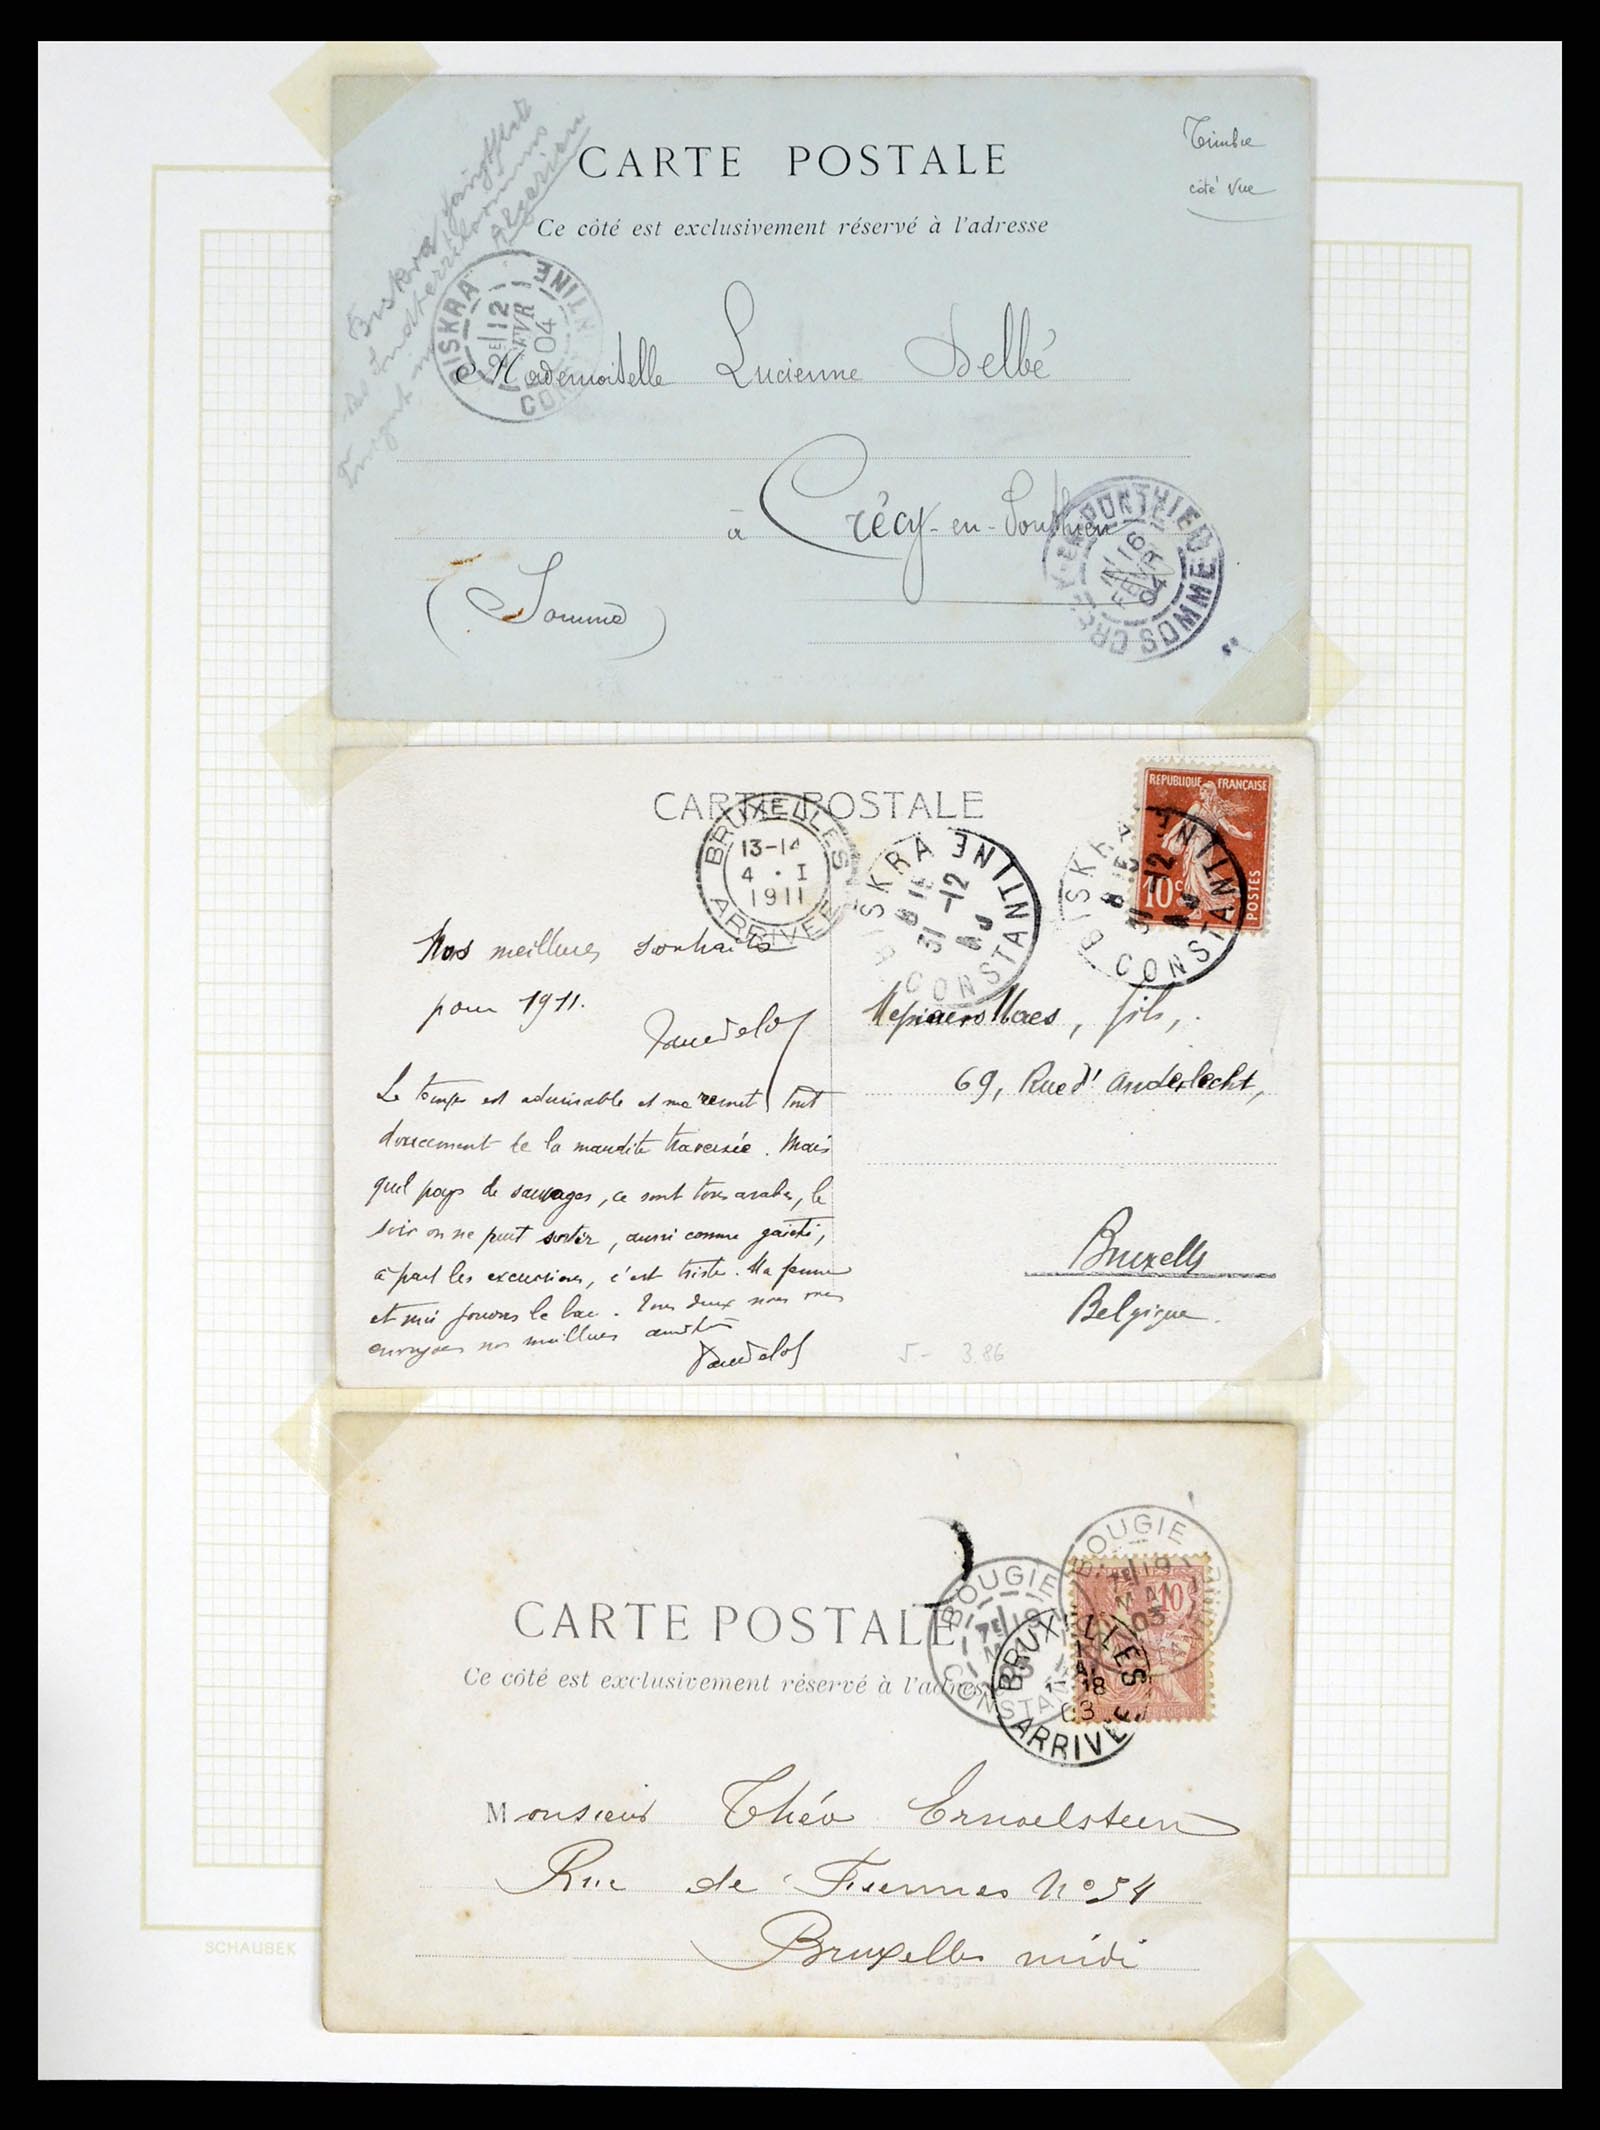 CARTE POSTALE
Timbre
côté vue
Ce côté est exclusivement réservé à l'adresse
Biskra
Algerien
BISKRA CONSTANTINE
2E 12
FEVR
04
Mademoiselle Lucienne Delbé
à Crécy-en-Ponthieu
(Somme)
CRÉCY-EN-PONTHIEU SOMME
16
FEVR
04
CARTE POSTALE
REPUBLIQUE FRANÇAISE
10c
POSTES
BRUXELLES
13-14
4 · I
1911
ARRIVEE
BISKRA CONSTANTINE
8 15
31-12
BISKRA CONSTANTINE
8 15
31-12
Nos meilleurs souhaits
pour 1911.
Messieurs Maes, fils,
69, Rue d'Anderlecht,
Bruxelles
Belgique.
Le temps est admirable et me remet tout
doucement de la maudite traversée. Mais
quel pays de sauvages, ce sont tous arabes, le
soir on ne peut sortir, aussi comme gaieté,
à part les excursions, c'est triste. Ma femme
et moi jouons le bac. Tous deux nous vous
envoyons nos meilleures amitiés
5- 3.86
CARTE POSTALE
Ce côté est exclusivement réservé à l'adresse
BOUGIE CONSTANTINE
7E 19
MAI
03
BOUGIE CONSTANTINE
7E 19
MAI
03
10
BRUXELLES
18
03
ARRIVEE
Monsieur Théo
Rue de Fiennes No 54
Bruxelles midi
SCHAUBEK